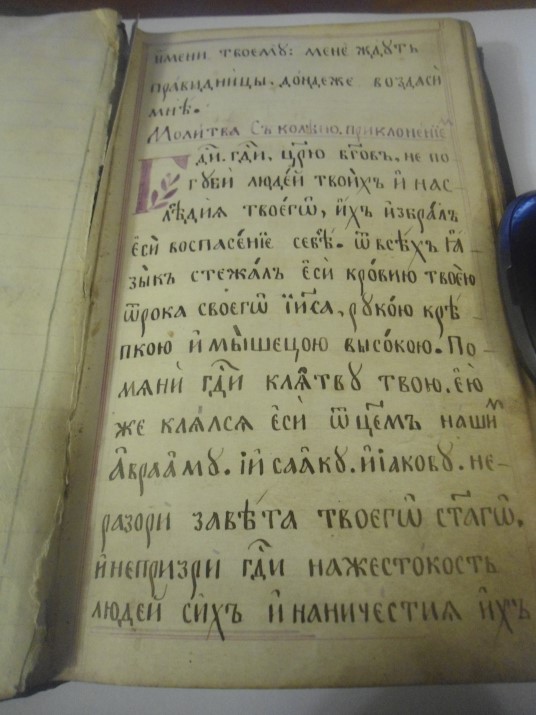 и҆мени твоемꙋ: мене ждꙋтъ
пра́видницы, до́ндеже воздаси́
мнѣ.
Моли́тва Съ колѣ́но, приклоне́нїеⷨ
Гдⷭ҇и. гдⷭ҇и, цр҃ю бг҃овъ, не по
гꙋби́ люде́й твои́хъ и҆ нас
лѣ́дїѧ твоегѡ̀, и҆́хъ и҆збра́лъ
є҆сѝ воспасе́нїе себѣ̀. ѿ всѣ́хъ ꙗ҆
зы́къ стежа́лъ є҆сѝ кро́вию твоє́ю
ѿрока своегѡ̀ і҆и҃са, рꙋко́ю крѣ́
пкою и҆ мы́шецою высо́кою. По
мѧнѝ гдⷭ҇и клѧ́твꙋ твою̀. є҆́ю
же клѧ́лсѧ є҆сѝ ѿцє́мъ нашиⷨ
А҆враа́мꙋ. і҆ й саа́кꙋ. и҆ і҆а́ковꙋ. не
разорѝ завѣ́та твоегѡ̀ ст҃а́гѡ,
и҆ непризрѝ гдⷭ҇и нажесто́кость
люде́й си́хъ и҆ наниче́стиѧ и҆́хъ